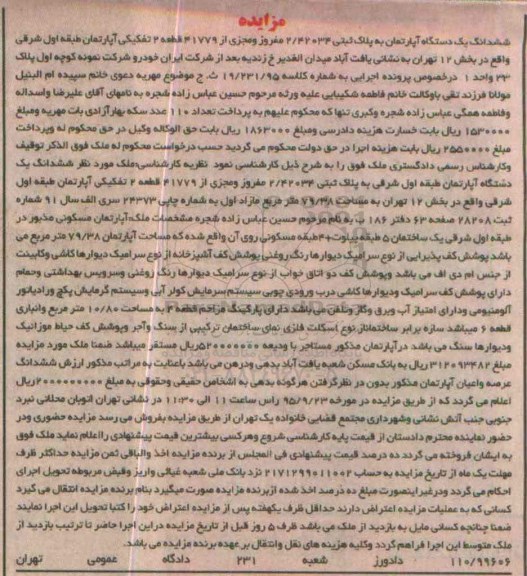 مزایده
ششدانگ یک دستگاه آپارتمان به پلاک ثبتی ۲/۴۲۰۳۴ مفروز ومجزی از ۴۱۷۷۹ قطعه ۲ تفکیکی آپارتمان طبقه اول شرقی
واقع در بخش ۱۲ تهران به نشانی یافت آباد میدان الغدیر خ زندیه بعد از شرکت ایران خودرو شرکت نمونه کوچه اول پلاک
۲۳ واحد ۱ درخصوص پرونده اجرایی به شماره کلاسه ۱۹/۲۳۱/۹۵ ث. ج موضوع مهریه دعوی خانم سپیده ام البنیل
مولانا فرزند تقی باوکالت خانم فاطمه شکیبایی علیه ورثه مرحوم حسین عباس زاده شجره به نامهای آقای علیرضا واسداله
وفاطمه همگی عباس زاده شجره وکبری تنها که محکوم علیهم به پرداخت تعداد ۱۱۰ عدد سکه بهارآزادی بات مهریه ومبلغ
۱۵۳۰۰۰۰ ریال بابت خسارت هزینه دادرسی ومبلغ ۱۸۶۳۰۰۰ ریال بابت حق الوکاله وکیل در حق محکوم له وپرداخت
مبلغ ۲۵۵۰۰۰۰ ریال بابت هزینه اجرا در حق دولت محکوم می گردید حسب درخواست محکوم له ملک فوق الذکر توقیف
وکارشناس رسمی دادگستری ملک فوق را به شرح ذیل کارشناسی نمود نظریه کارشناسی:ملک مورد نظر ششدانگ یک
دستگاه آپارتمان طبقه اول شرقی به پلاک ثبتی ۲/۴۲۰۳۴ مفروز ومجزی از ۴۱۷۷۹ قطعه ۲ تفکیکی آپارتمان طبقه اول
شرقی واقع در بخش ۱۲ تهران به مساحت ۷۹/۳۸ متر مربع مازاد اول به شماره چاپی ۲۴۲۷۳ سری الف سال ۹۱ شماره
ثبت ۲۸۲۰۸ صفحه ۶۳ دفتر ۱۸۶ ب به نام مرحوم حسین عباس زاده شجره مشخصات ملک:آپارتمان مسکونی مذبور در
طبقه اول شرقی یک ساختمان ۵ طبقه:پیلوت+۴طبقه مسکونی روی آن واقع شده که مساحت آپارتمان ۷۹/۳۸ متر مربع می
باشد پوشش کف پذیرایی از نوع سرامیک دیوارها رنگ روغنی پوشش کف آشپزخانه از نوع سرامیک دیوارها کاشی وکابینت
از جنس ام دی اف می باشد وپوشش کف دو اتاق خواب از نوع سرامیک دیوارها رنگ روغنی وسرویس بهداشتی وحمام
دارای پوشش کف سرامیک ودیوارها کاشی درب ورودی چوبی سیستم سرمایش کولر آبی وسیستم گرمایش پکیج ورادیاتور
آلومینیومی ودارای امتیاز آب وبرق وگاز وتلفن می باشد دارای پارکینگ مزاحم قطعه ۴ به مساحت ۱۰/۸۰ متر مربع وانباری
قطعه ۶ میباشد سازه برابر ساختمانی از نوع اسکلت فلزی نمای ساختمان ترکیبی از سنگ وآجر وپوشش کف حیاط موزائیک
ودیوارها سنگ می باشد درآپارتمان مذکور مستاجر با ودیعه ۵۲۰۰۰۰۰۰۰ریال مستقر میباشد ضمنا ملک مورد مزایده
مبلغ ۳۱۲۰۹۳۴۸۲ ریال به بانک مسکن شعبه یافت آباد بدهی ودرهن می باشد باعنایت به مراتب مذکور ارزش ششدانگ
عرصه واعیان آپارتمان مذکور بدون در نظر گرفتن هرگونه بدهی به اشخاص حقیقی وحقوقی به مبلغ ۲۰۰۰۰۰۰۰۰۰ریال
اعلام می گردد که از طریق مزایده در مورخه ۹۵/۹/۲۳ راس ساعت ۱۱ الی ۱۱:۳۰ در نشانی تهران اتوبان محلاتی نبرد
جنوبی جنب آتش نشانی وشهرداری مجتمع قضایی خانواده یک تهران از طریق مزایده بفروش می رسد مزایده حضوری ودر
حضور نماینده محترم دادستان از قیمت پایه کارشناسی شروع وهرکسی بیشترین قیمت پیشنهادی رااعلام نماید ملک فوق
به ایشان فروخته می گردد ده درصد قیمت پیشنهادی فی المجلس از برنده مزایده اخذ والباقی ثمن مزایده حداکثر ظرف
مهلت یک ماه از تاریخ مزایده به حساب ۲۱۷۱۲۹۹۰۱۱۰۰۲ نزد بانک ملی شعبه غیاثی واریز وفیش مربوطه تحویل اجرای
احکام می گردد ودرغیر اینصورت مبلغ ده درصد اخذ شده ازبرنده مزایده صورت میگیرد بنام برنده مزایده انتقال می گیرد
کسانی که به عملیات مزایده اعتراض دارند حداقل ظرف یکهفته پس از مزایده اعتراض خود را کتبا تحویل این اجرا نمایند
ضمنا چنانچه کسانی مایل به بازدید از ملک می باشد ظرف ۵ روز قبل از تاریخ مزایده دراین اجرا حاضر تا ترتیب بازدید از
ملک متوسط این اجرا فراهم گردد وکلیه هزینه های نقل وانتقال بر عهده برنده مزایده می باشد.
۱۱۰/۹۹۶۰۶ دادورز شعبه ۲۳۱ دادگاه عمومی تهران